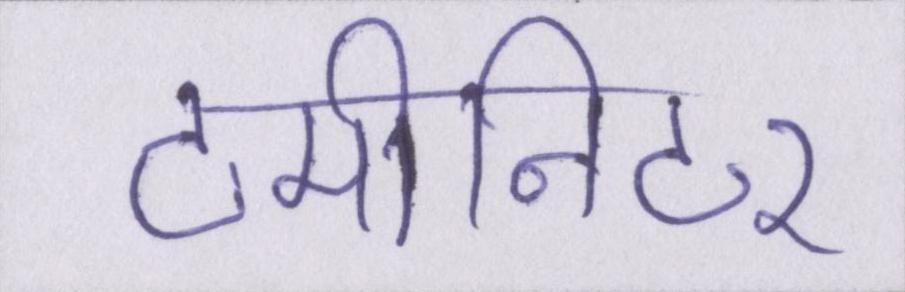 टमीनिटर